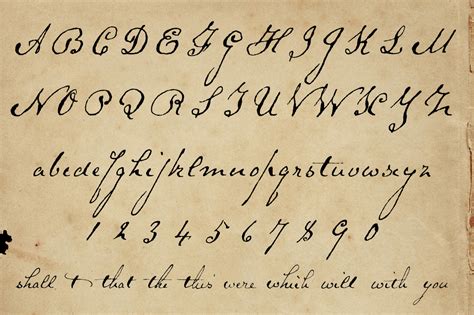 A B C D E F G H I J K L M
N O P Q R S T U V W X Y Z
a b c d e f g h i j k l m n o p q r s t u v w x y z
1 2 3 4 5 6 7 8 9 0
shall & that the this were which will with you